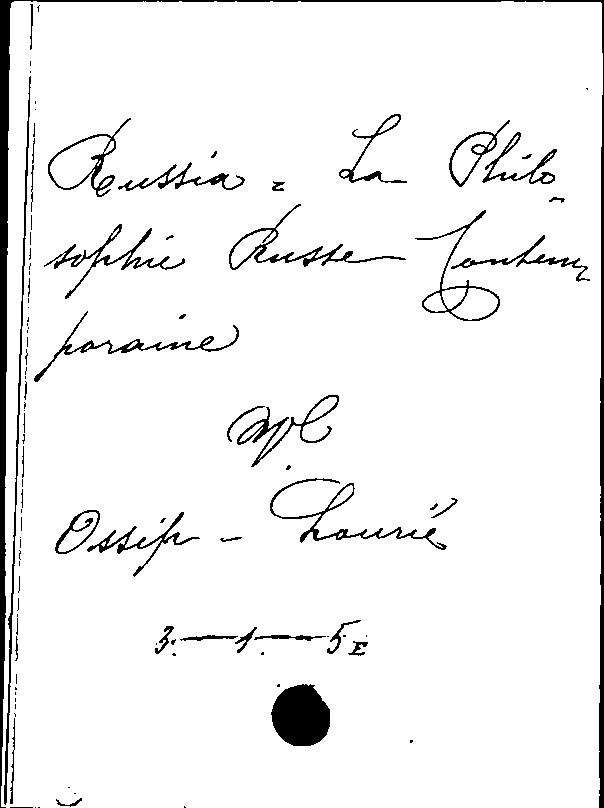 Russia = La Philo-
sophie Russe Contem-
poraine
Ossip - Lourié
3.—1.—5 E